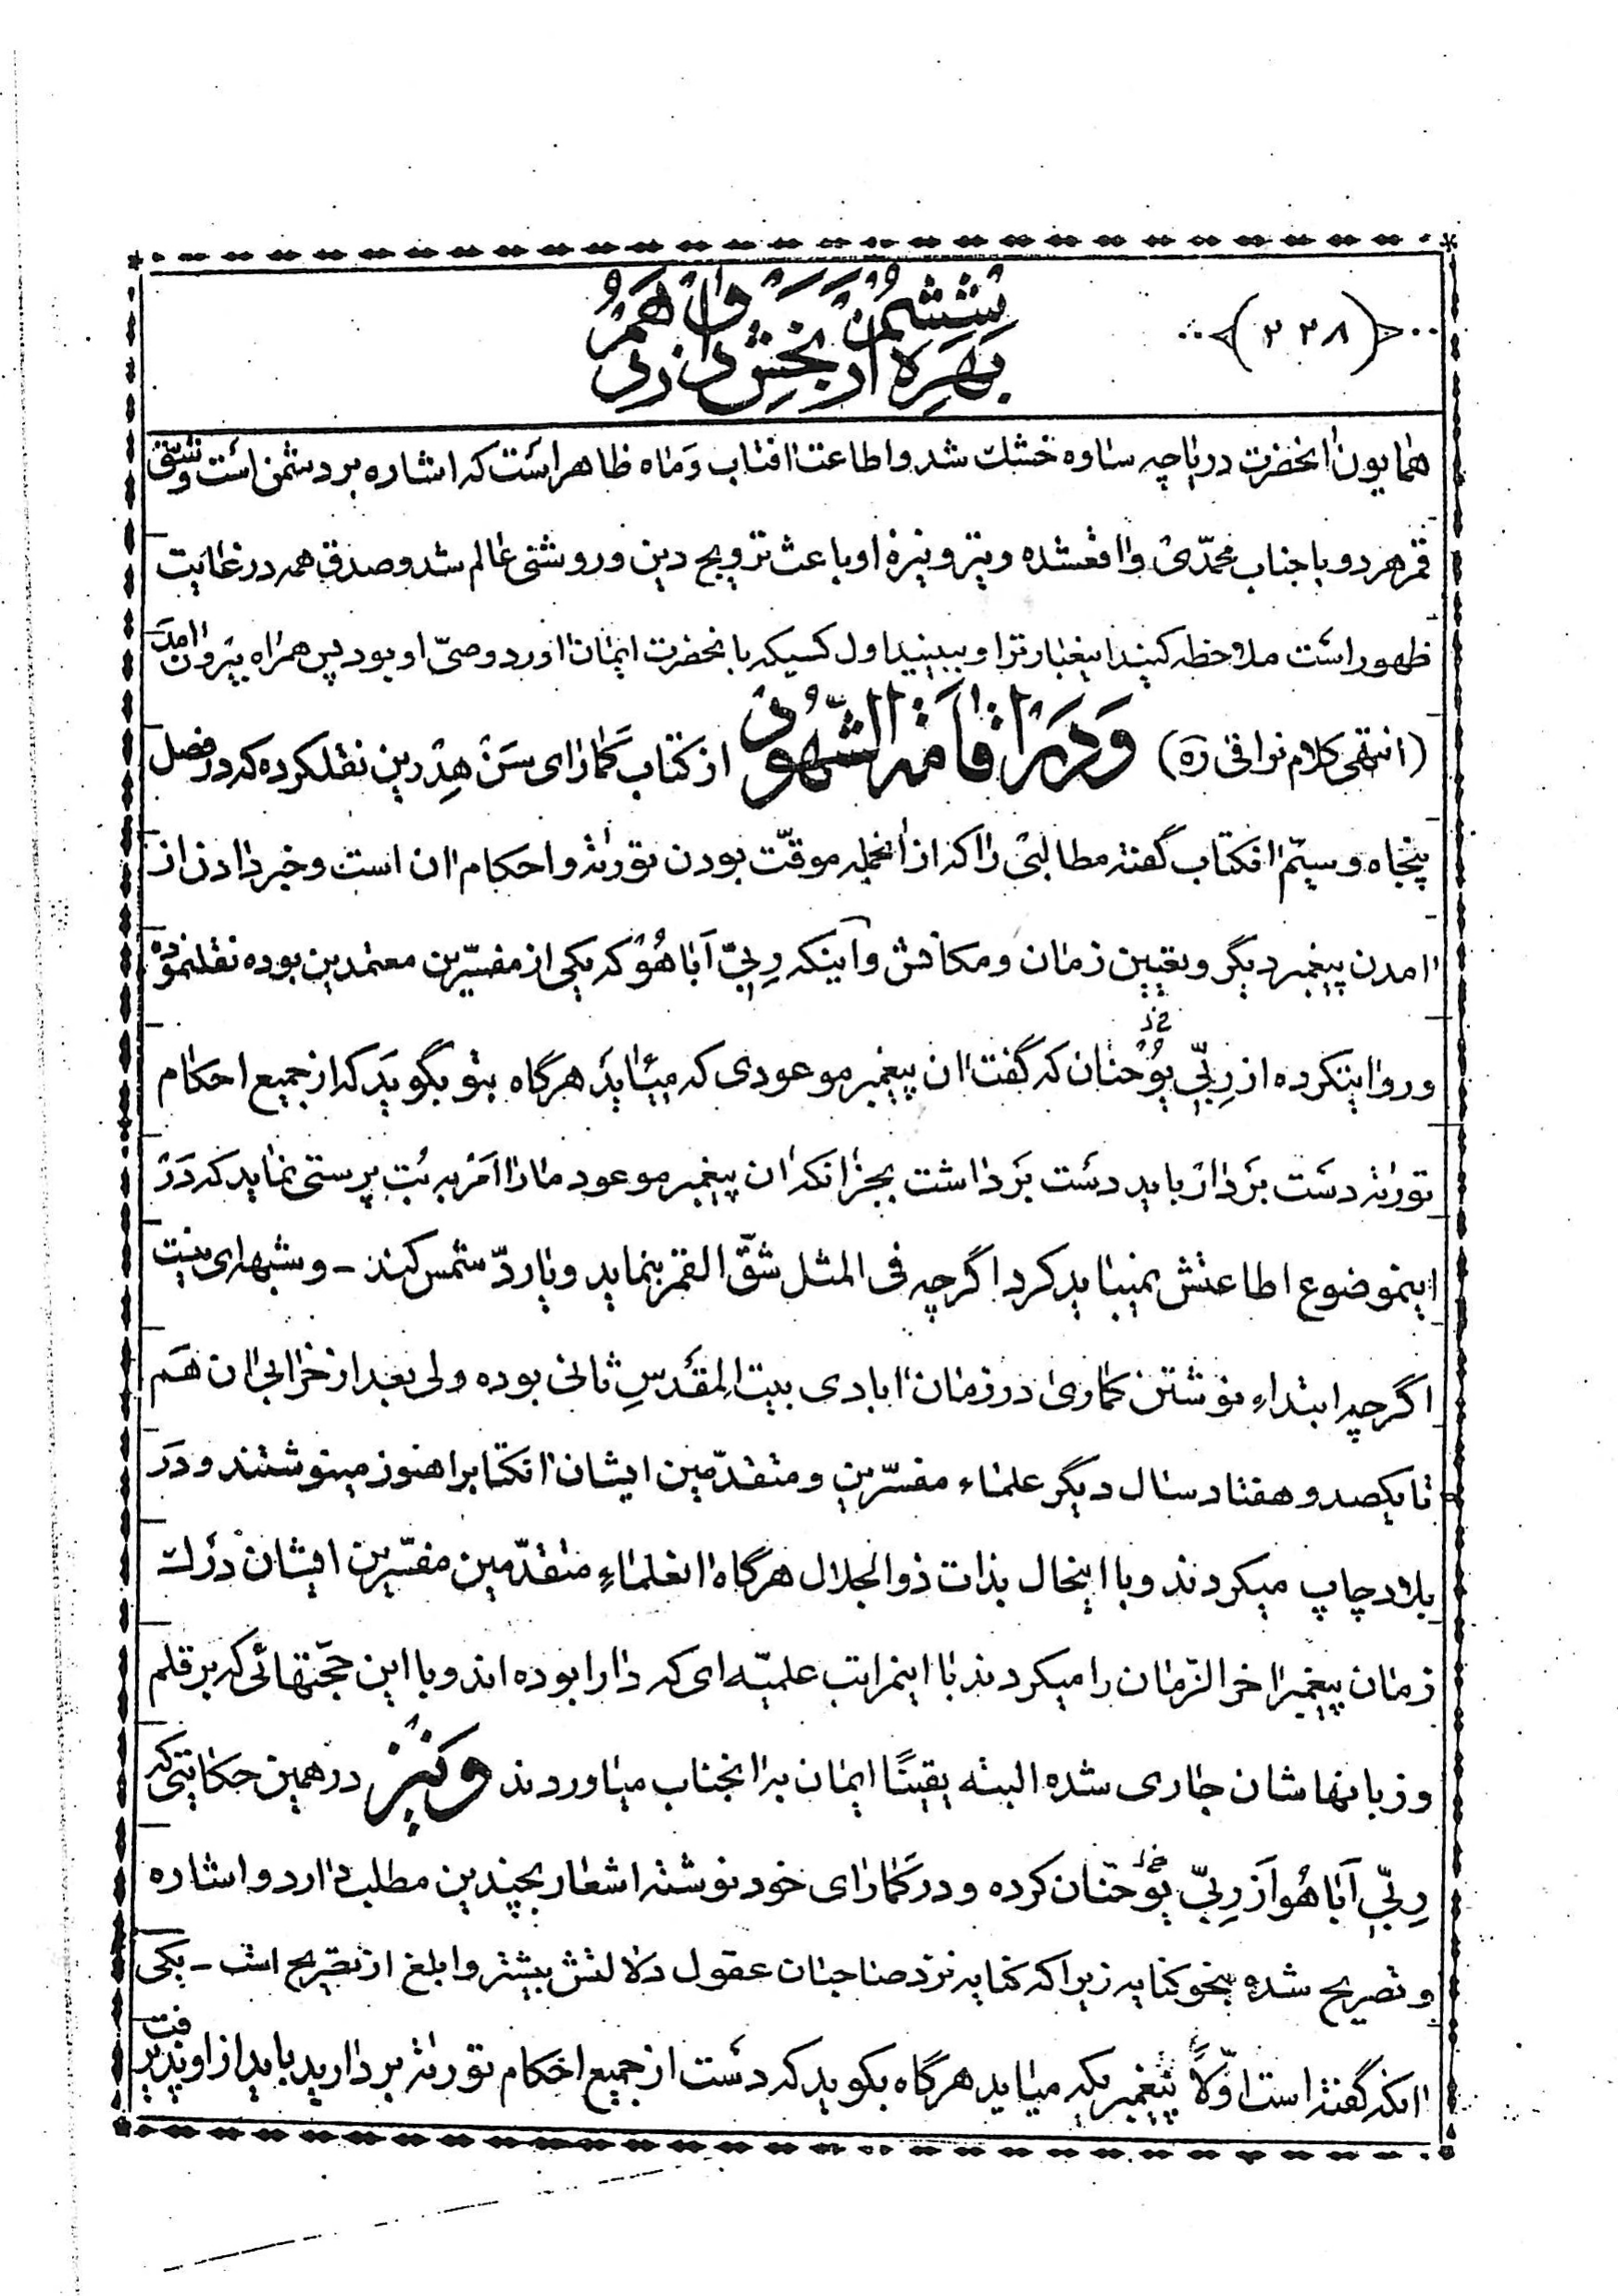 (۲۲۸)
ششمین بهره از بخش دوازدهم
همایون انحضرت دریاچه ساوه خشك شد و اطاعت افتاب و ماه ظاهر است که اشاره برد شمس است و شق
قمر هر دو با جناب محمّدی واقعشده و نیز و نیزهٔ او باعث ترویج دین و روشنی عالم شد و صدق همه در غایت
ظهور است ملاحظه کنید ایغبارترا و ببینید اول کسیکه بانحضرت ایمان اورد وصیّ او بود پس همراه پیروان امد
(انتهی کلام نراقی ره) و در اقامة الشهود از کتاب گمارای سَنْ هِدْرین نقلکرده که در فصل
پنجاه و سیّم انکتاب گفته مطالبی را که از انجمله موقّت بودن تورىة و احکام ان است و خبر دادن از
امدن پیغمبر دیگر و تعیین زمان و مکانش و اینکه رِبیّ اَباهُو که یکی از مفسّرین معتمدین بوده نقلنموده
و روایتکرده از رِبیّ یُوُحنان که گفت ان پیغمبر موعودی که میاید هر گاه بتو بگوید که از جمیع احکام
تورىة دست بردار باید دست برداشت بجز انکه ان پیغمبر موعود ما را امر به بت پرستی نماید که در
اینموضوع اطاعتش نمیباید کرد اگر چه فی المثل شقّ القمر بنماید و یا ردّ شمس کند - و شبهه‌ای نیست
اگر چه ابتداءِ نوشتن گماری در زمان ابادی بیت المقدسِ ثانی بوده ولی بعد از خرابی ان هم
تا یکصد و هفتاد سال دیگر علماء مفسّرین و متقدّمین ایشان انکتابرا هنوز مینوشتند و در
بلاد چاپ میکردند و با اینحال بذات ذوالجلال هر گاه انعلماءِ متقدّمین مفسّرین ایشان درك
زمان پیغمبر اخر الزّمان را میکردند با اینمراتب علمیّه‌ای که دارا بوده اند و با این حجّتهائی که بر قلم
و زبانهاشان جاری شده البته یقینًا ایمان به انجناب میاوردند و نیز در همین حکایتی که
رِبیّ اَباهُو از رِبیّ یُوُحنّان کرده و در گمارای خود نوشته اشعار بچندین مطلب دارد و اشاره
و تصریح شده بنحو کنایه زیرا که کنایه نزد صاحبان عقول دلالتش بیشتر و ابلغ از تصریح است - یکی
انکه گفته است اوّلاً پیغمبریکه میاید هر گاه بگوید که دست از جمیع احکام تورىة بردارید باید از او پذیرفت